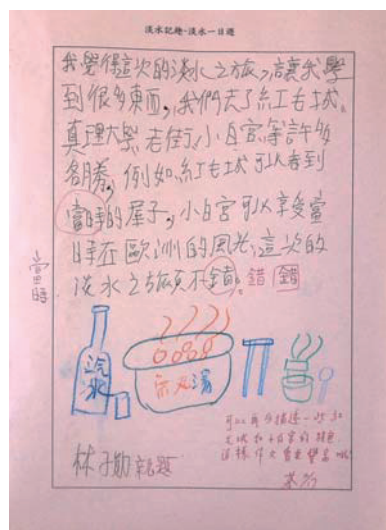 淡水記趣-淡水一日遊
我覺得這次的淡水之旅,讓我學
到很多東西,我們去了紅毛城、
真理大學、老街、小白宮等許多
名勝,例如紅毛城可以看到
當時的屋子,小白宮可以享受當
時在歐洲的風光,這次的
淡水之旅真不錯。錯 錯
當時
汽水
魚丸湯
可以再多描述一些紅
毛城和小白宮的特色
這樣作文會更豐富哦!
林子勛